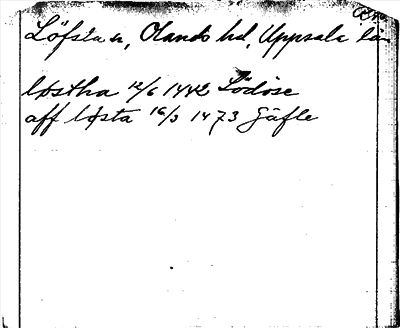 Löfsta n, Olands hd, Uppsala län
løstha 12/6 1442 Lödöse
aff løsta 16/3 1473 Gäfle